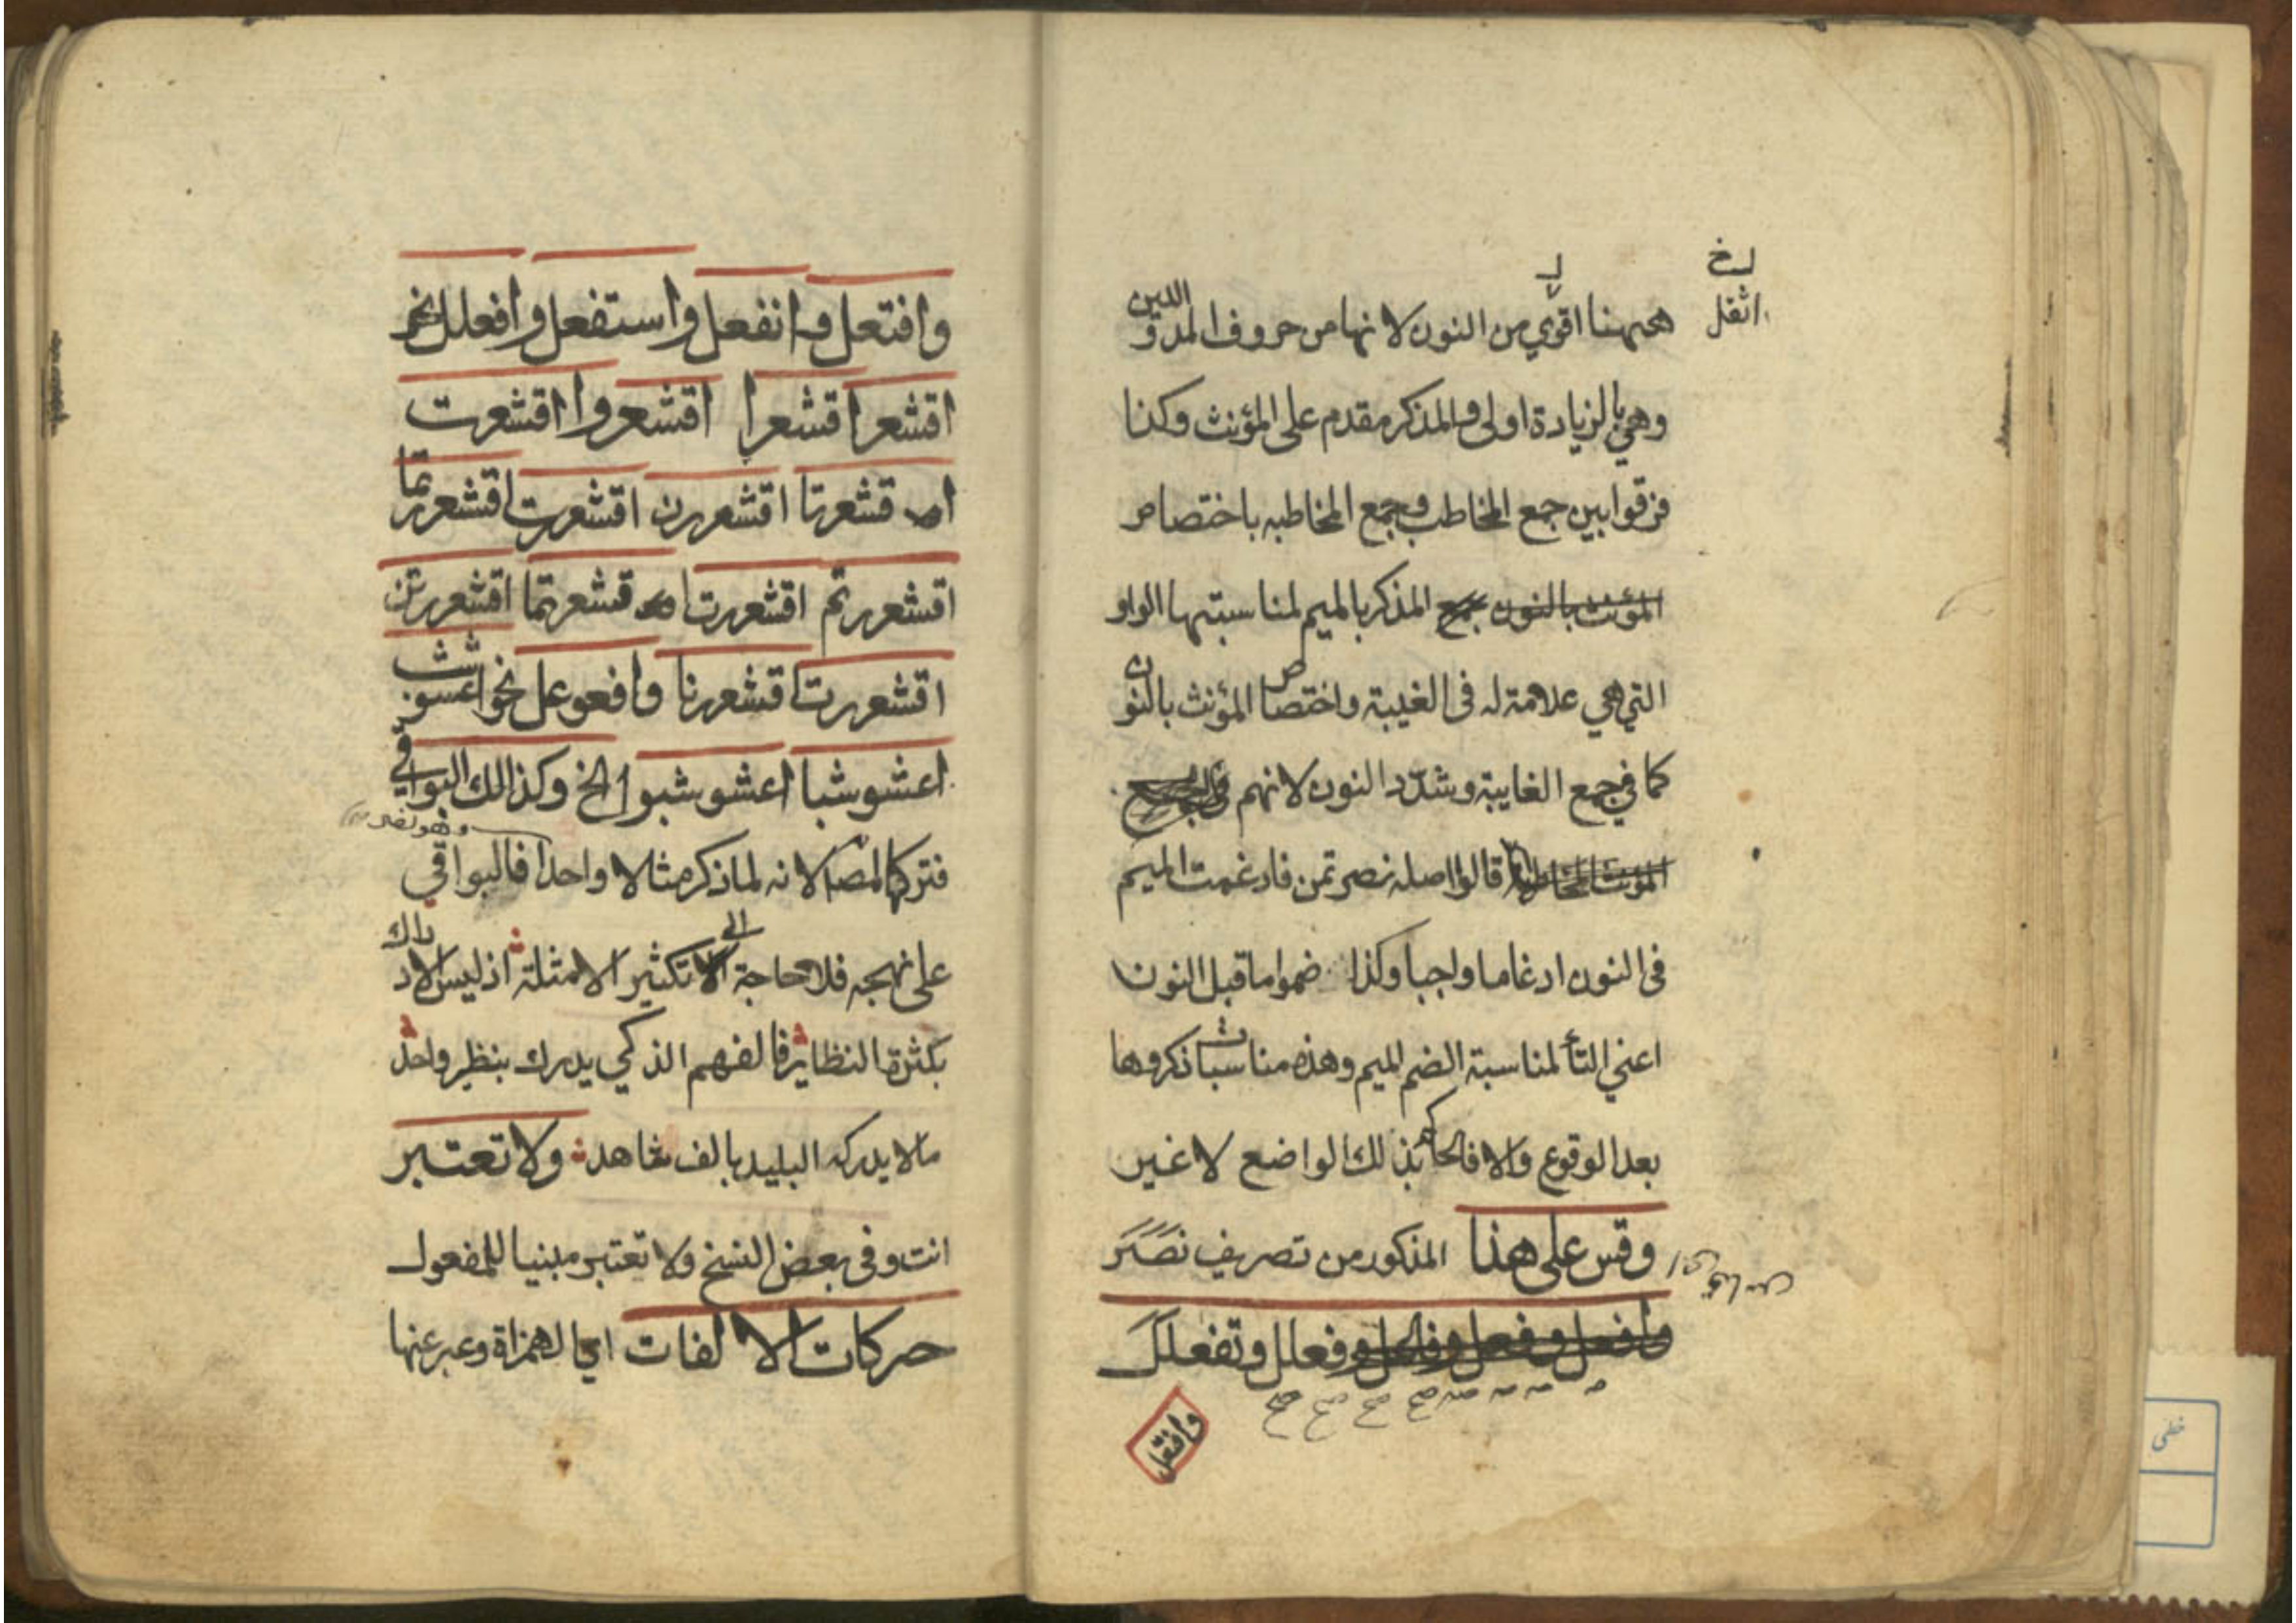 لـ خ
اثقل
ههنا اقوي من النون لانها من حروف المد و الدين
وهي بالزيادة اولى والمذكر مقدم على المؤنث وكذا
فرقوا بين جمع المخاطب وجمع المخاطبه باختصاص
المؤنث بالنون جمع المذكر بالميم لمناسبتها الواو
التي هي علامة له فى الغيبة واختصاص المؤنث بالنون
كما في جمع الغايبة وشدّد النون لانهم
قالوا اصله نصرتمن فادغمت الميم
فى النون ادغاما واجبا وكذا ضموا ما قبل النون
اعني التأ لمناسبة الضم الميم وهذه مناسبات ذكروها
بعد الوقوع والا فالحاكم بذلك الواضع لا غير
وقس على هذا المذكور من تصريف نَصَرَ
وافعل وفعل وفاعل وفعلل وتفعلل
وافتعل
وافتعل وانفعل واستفعل وافعلل نحو
اقشعر اقشعرا اقشعروا اقشعرت
اقشعرتا اقشعررن اقشعررت اقشعررتما
اقشعررتم اقشعررت اقشعررتما اقشعررتن
اقشعررت اقشعررنا وافعوعل نحو اعشوشب
اعشوشبا اعشوشبوا الخ وكذالك البواقي
فتركها المص لانه لما ذكر مثالا واحدا فالبواقي
على نهجه فلا حاجة الى تكثير الامثلة اذ ليس الادراك
بكثرة النظاير فالفهم الذكي يدرك بنظير واحد
مالا يدركه البليد بالف شاهد ولا تعتبر
انت وفى بعض النسخ ولا تعتبر مبنيا للمفعول
حركات الالفات اي الهمزاة وعبر عنها
خطى